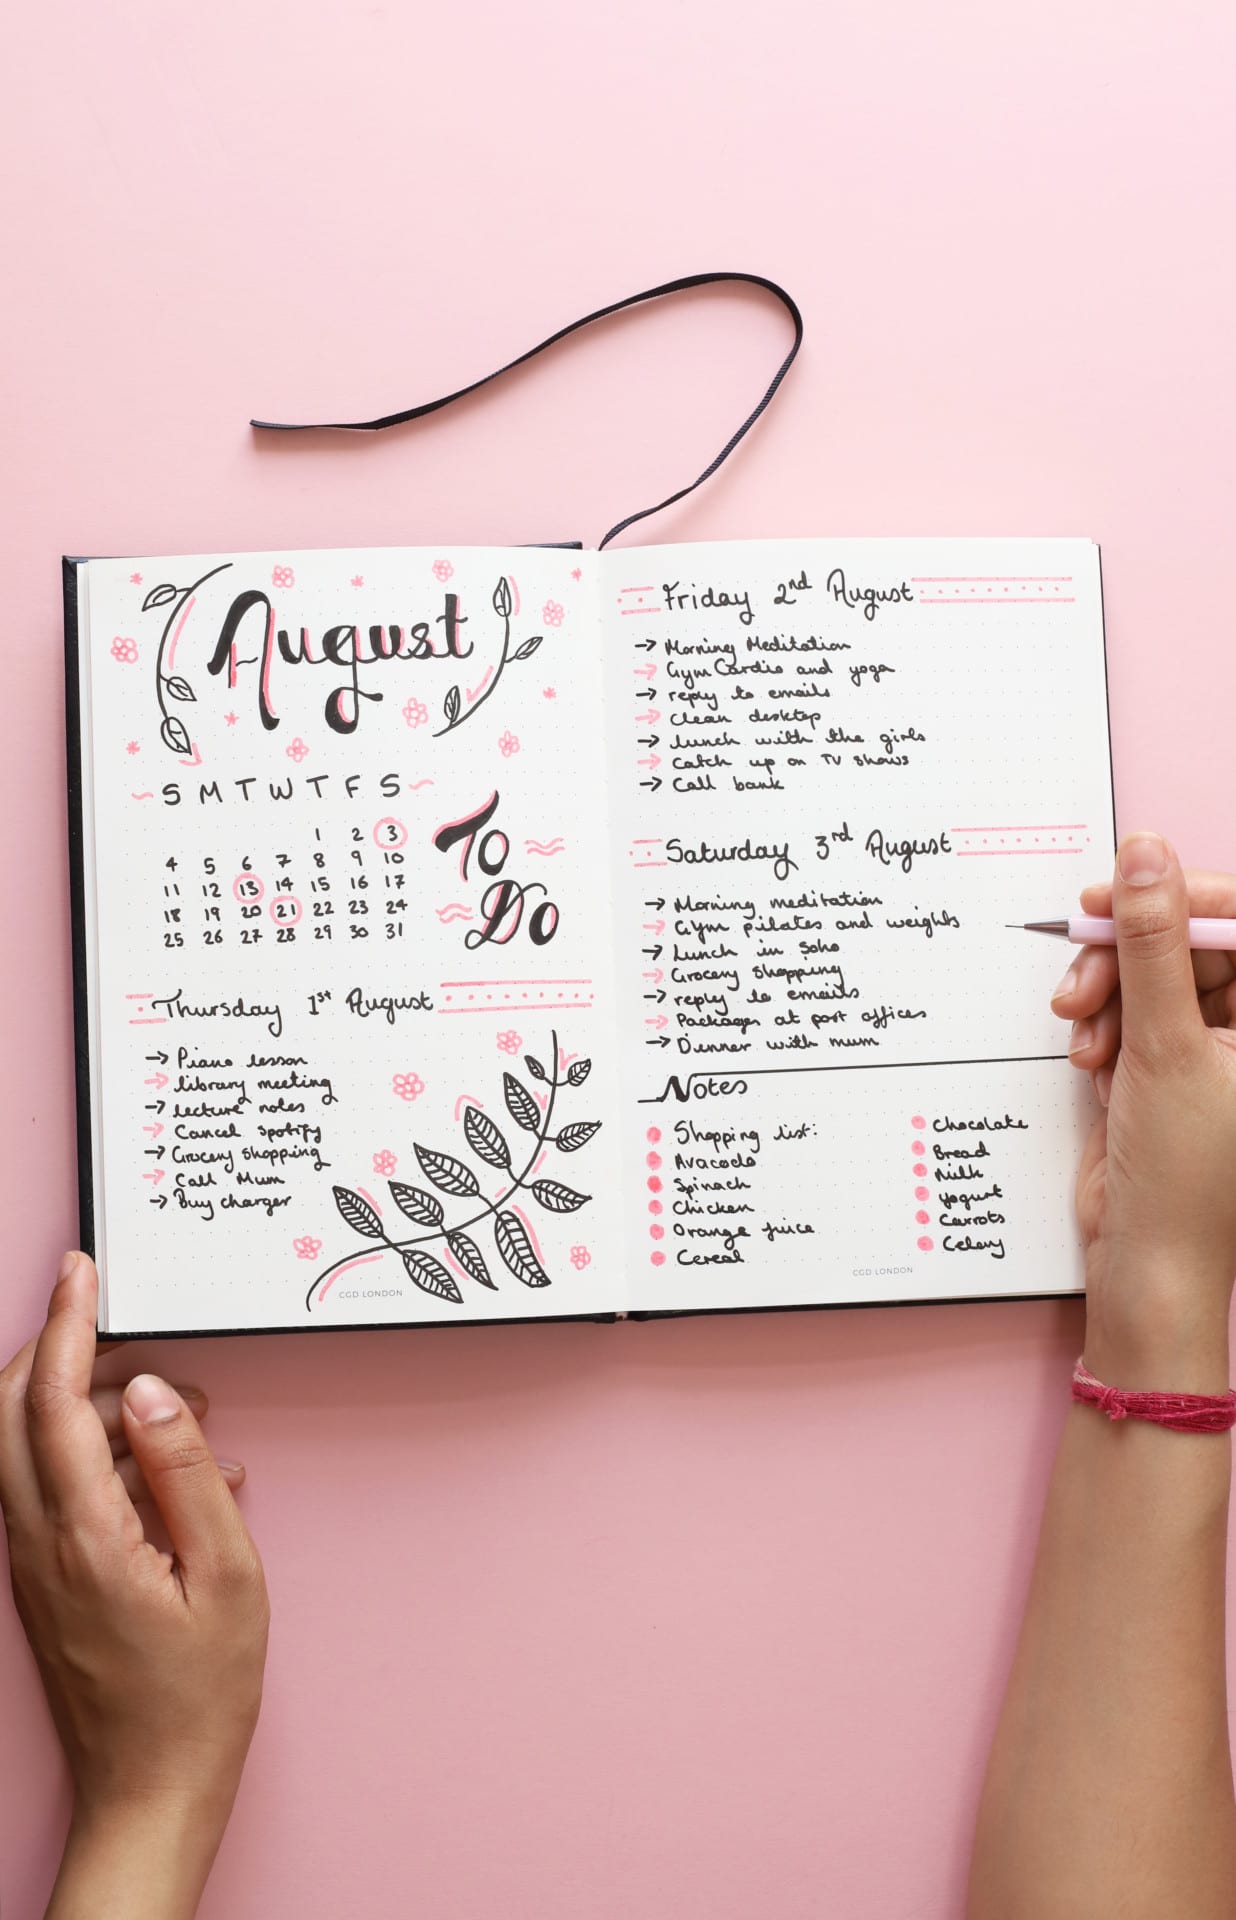 August
S M T W T F S
1 2 3
4 5 6 7 8 9 10
11 12 13 14 15 16 17
18 19 20 21 22 23 24
25 26 27 28 29 30 31
To
Do
Thursday 1st August
→ Piano lesson
→ library meeting
→ lecture notes
→ Cancel spotify
→ Grocery shopping
→ Call Mum
→ Buy charger
CGD LONDON
Friday 2nd August
→ Morning Meditation
→ Gym Cardio and yoga
→ reply to emails
→ clean desktop
→ lunch with the girls
→ Catch up on TV shows
→ Call bank
Saturday 3rd August
→ Morning meditation
→ Gym pilates and weights
→ Lunch in Soho
→ Grocery shopping
→ reply to emails
→ Packages at post offices
→ Dinner with mum
Notes
Shopping list:
Avacado
Spinach
Chicken
Orange juice
Cereal
Chocolate
Bread
Milk
Yogurt
Carrots
Celery
CGD LONDON